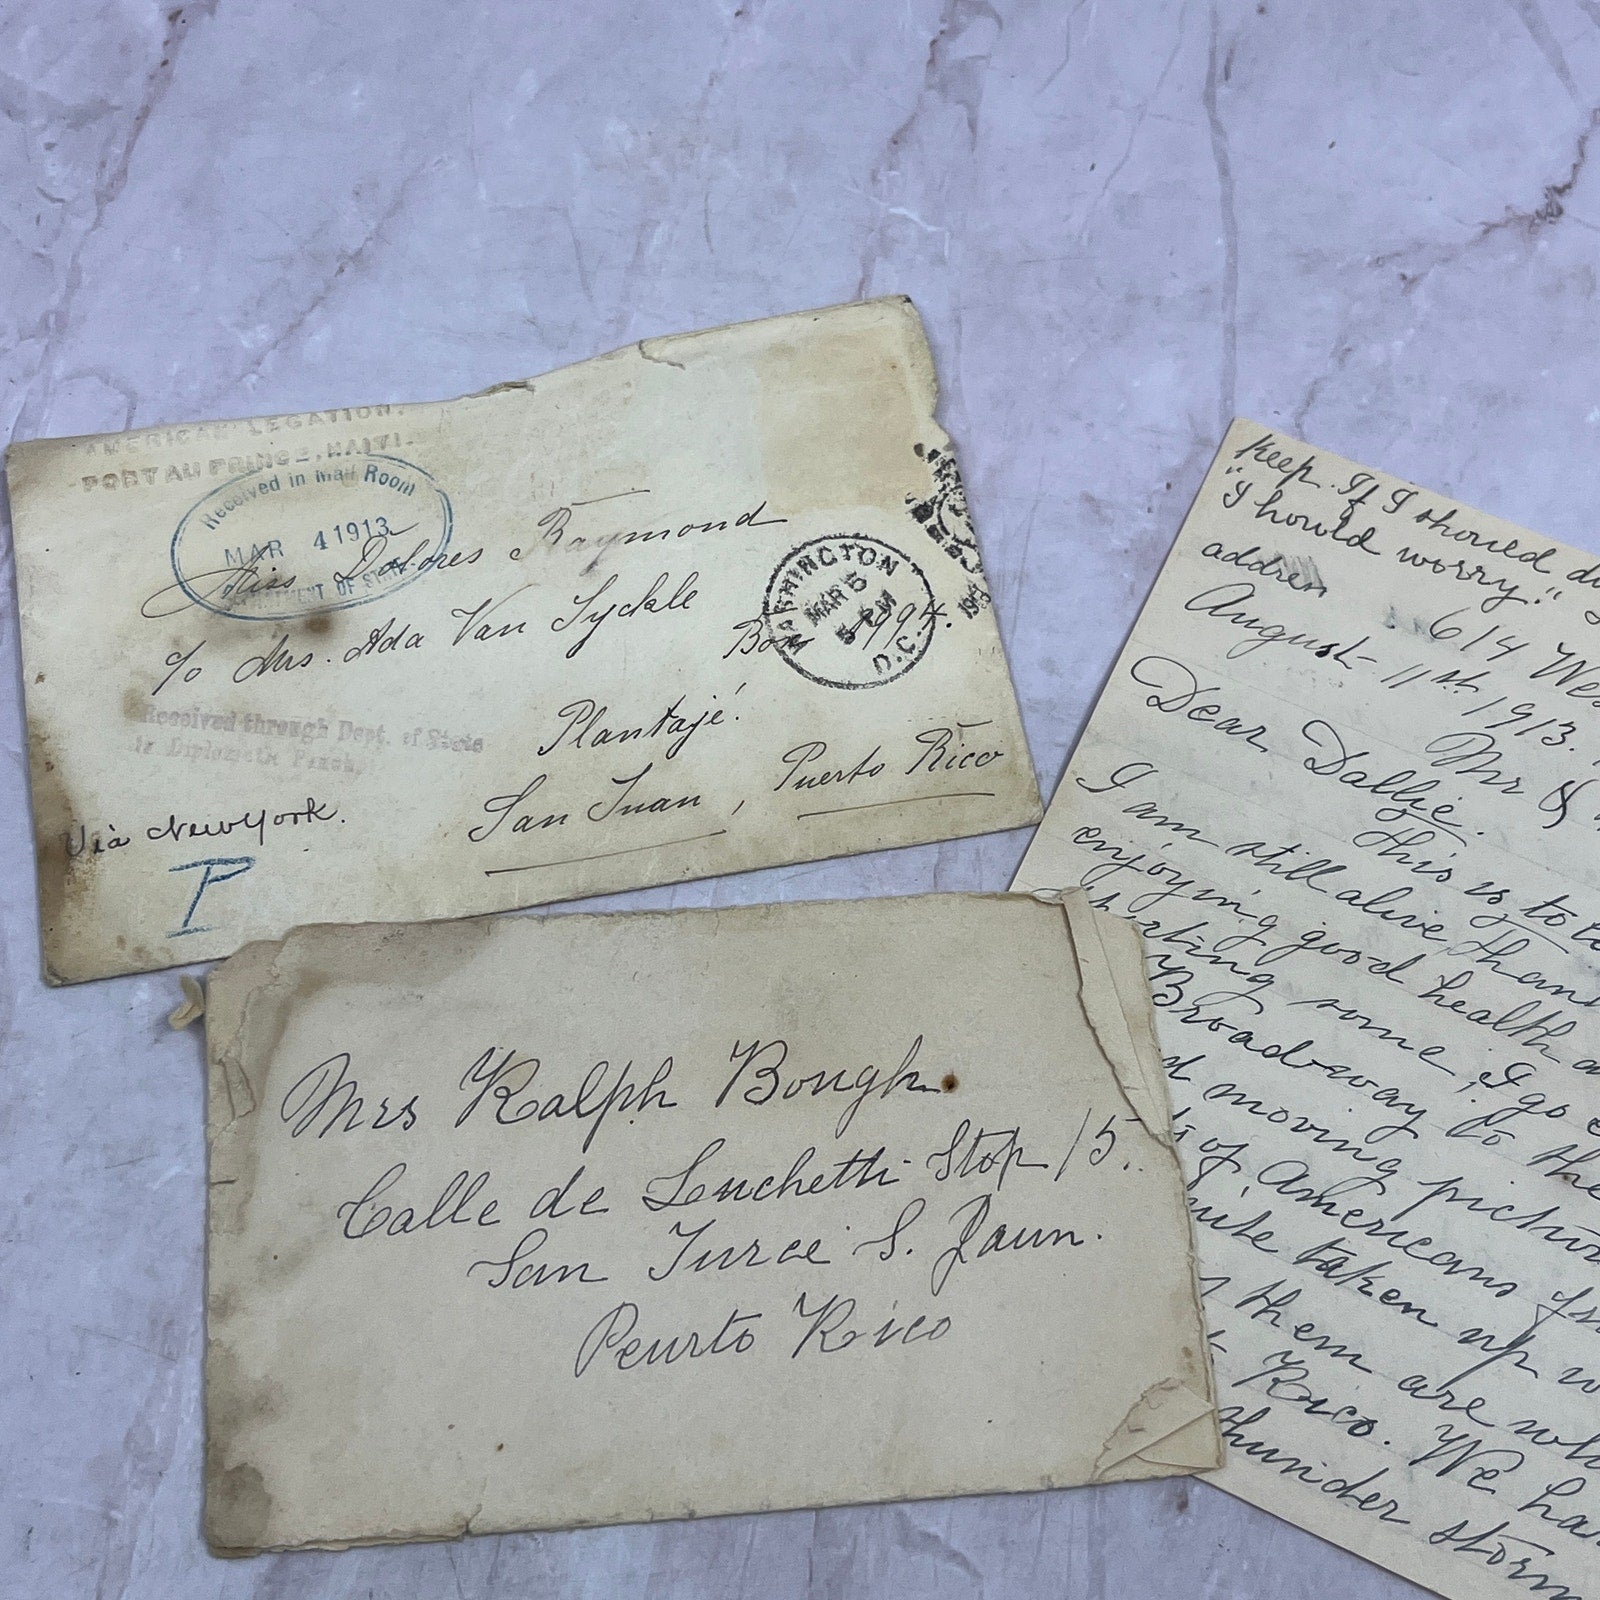 AMERICAN LEGATION.
PORT AU PRINCE, HAITI.
Received in Mail Room
MAR 4 1913
DEPARTMENT OF STATE
Miss Dolores Raymond
c/o Mrs. Ada Van Syckle
Box 1994.
Plantaje.
San Juan, Puerto Rico
WASHINGTON
MAR 5
D.C.
Received through Dept. of State
in Diplomatic Pouch.
Via New York.
P
Mrs Ralph Bough
Calle de Luchetti Stop 15.
San Turce S. Jaun.
Peurto Rico
keep. If I should di
"I hould worry."
addres
614 Wes
August 11st, 1913.
Dear Dallie.
Mr &
This is to te
I am still alive than
enjoying good health a
some, I go
Broadway to the
moving pictur
of Americans fr
taken up w
them are wh
Rico. We ha
thunder storm